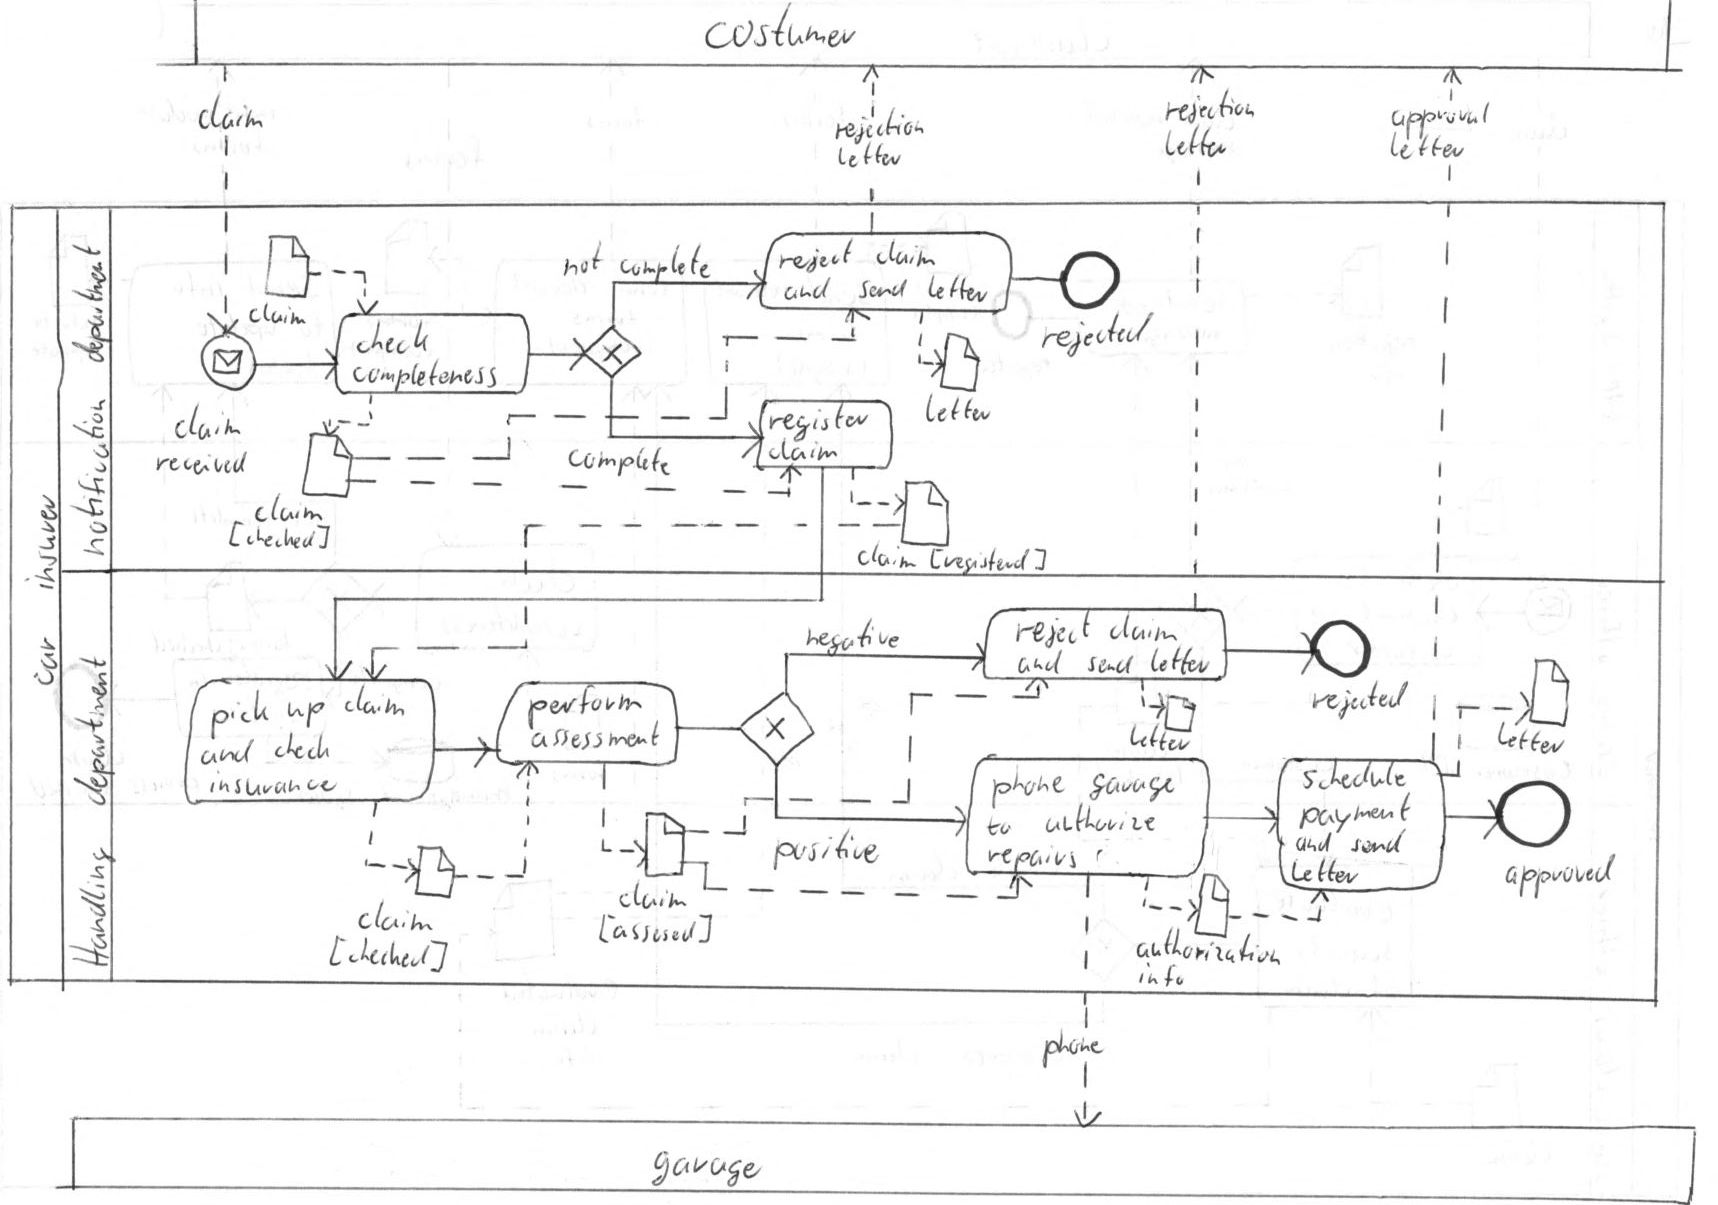 costumer
claim
rejection
letter
rejection
letter
approval
letter
car insurer
notification department
claim
claim
received
check
completeness
claim
[checked]
not complete
complete
reject claim
and send letter
letter
rejected
register
claim
claim [registerd]
Handling department
pick up claim
and check
insurance
claim
[checked]
perform
assessment
claim
[assesed]
negative
positive
reject claim
and send letter
letter
rejected
phone garage
to authorize
repairs
authorization
info
schedule
payment
and send
letter
letter
approved
phone
garage